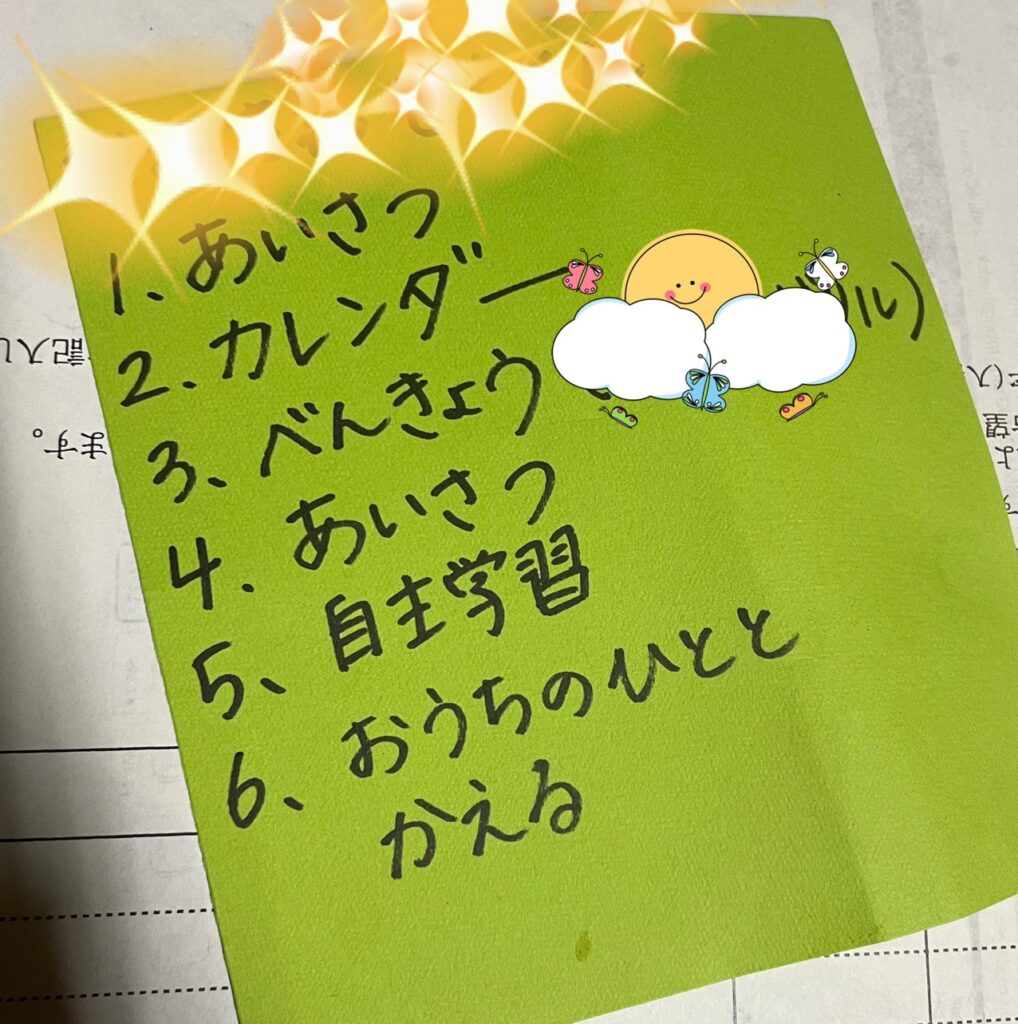 1. あいさつ
2. カレンダー ル)
3、べんきょう
4. あいさつ
5、自主学習
6、おうちのひとと
かえる
記入し
ます。